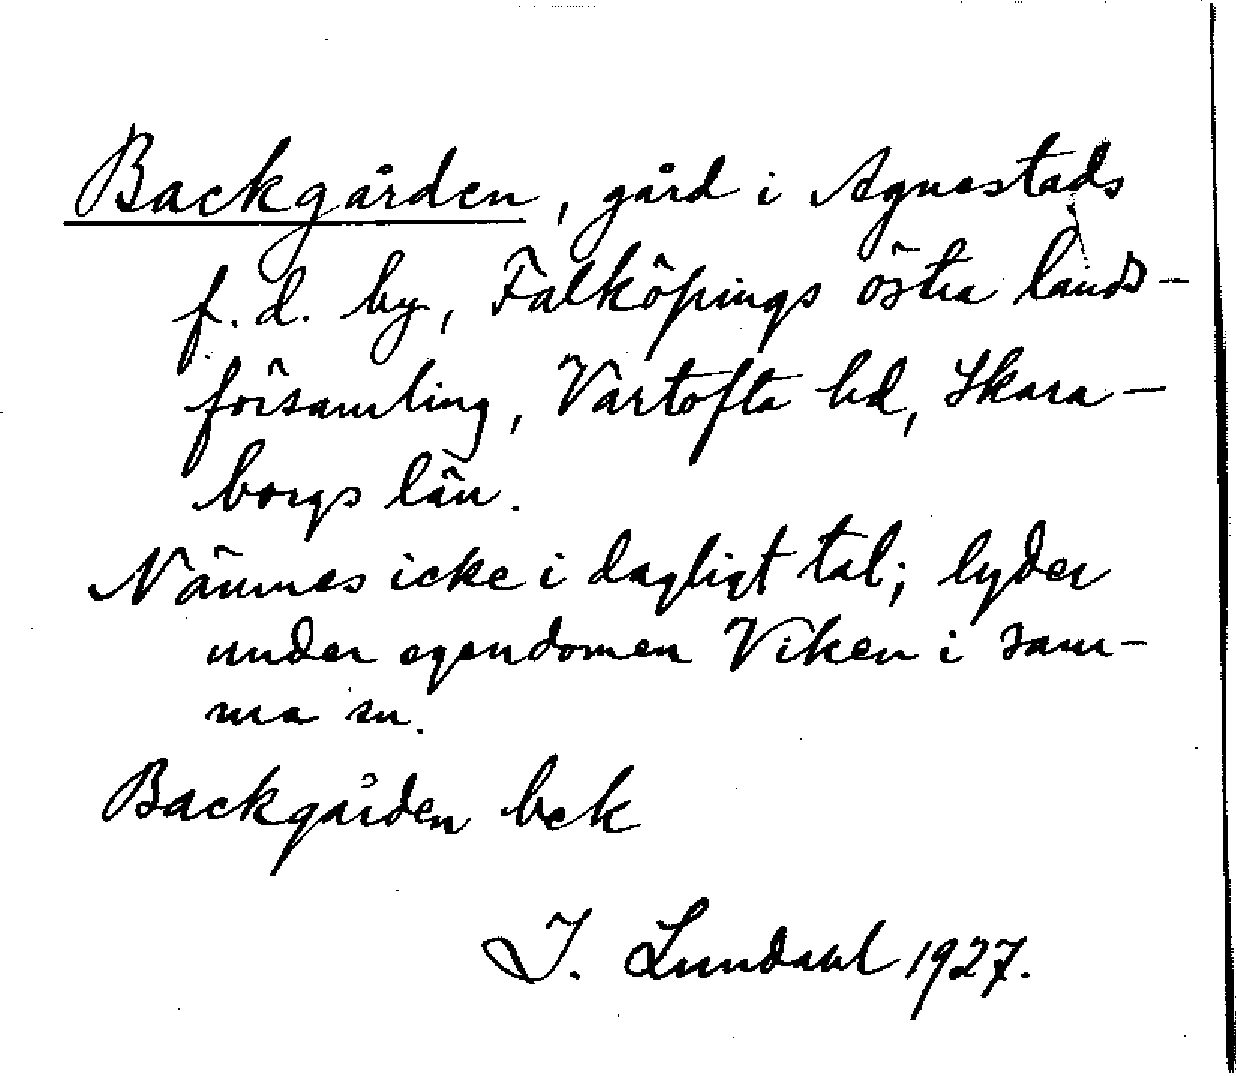 Backgården, gård i Agnestads
f.d. by, Falköpings östra lands-
församling, Vartofta hd, Skara-
borgs län.
Nämnes icke i dagligt tal; lyder
under egendomen Viken i sam-
ma sn.
Backgården bek
I. Lundahl 1927.